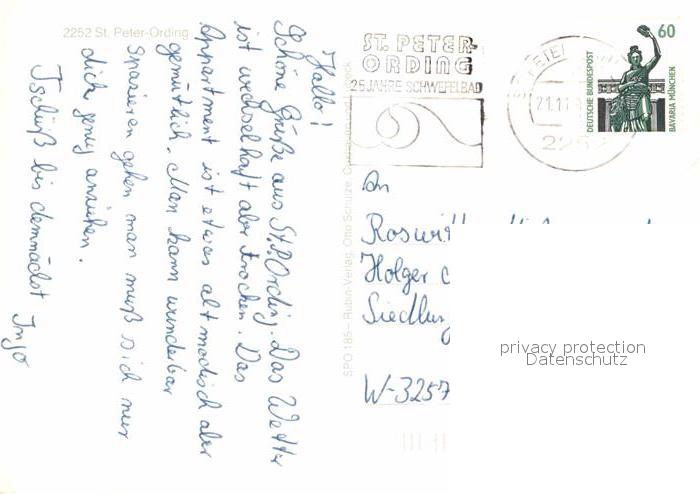 2252 St. Peter-Ording
Hallo!
Schöne Grüße aus St.P.Ording. Das Wetter
ist wechselhaft aber trocken. Das
Appartment ist etwas altmodisch aber
gemütlich. Man kann wunderbar
spazieren gehen man muß sich nur
dick genug anziehen.
Tschüß bis demnächst Ingo
SPO 185 – Rubin-Verlag Otto Schulze
ST. PETER-
ORDING
25 JAHRE SCHWEFELBAD
21.11
2252
60
DEUTSCHE BUNDESPOST
BAVARIA MÜNCHEN
An
Holger
Siedlung
W-3257
privacy protection
Datenschutz